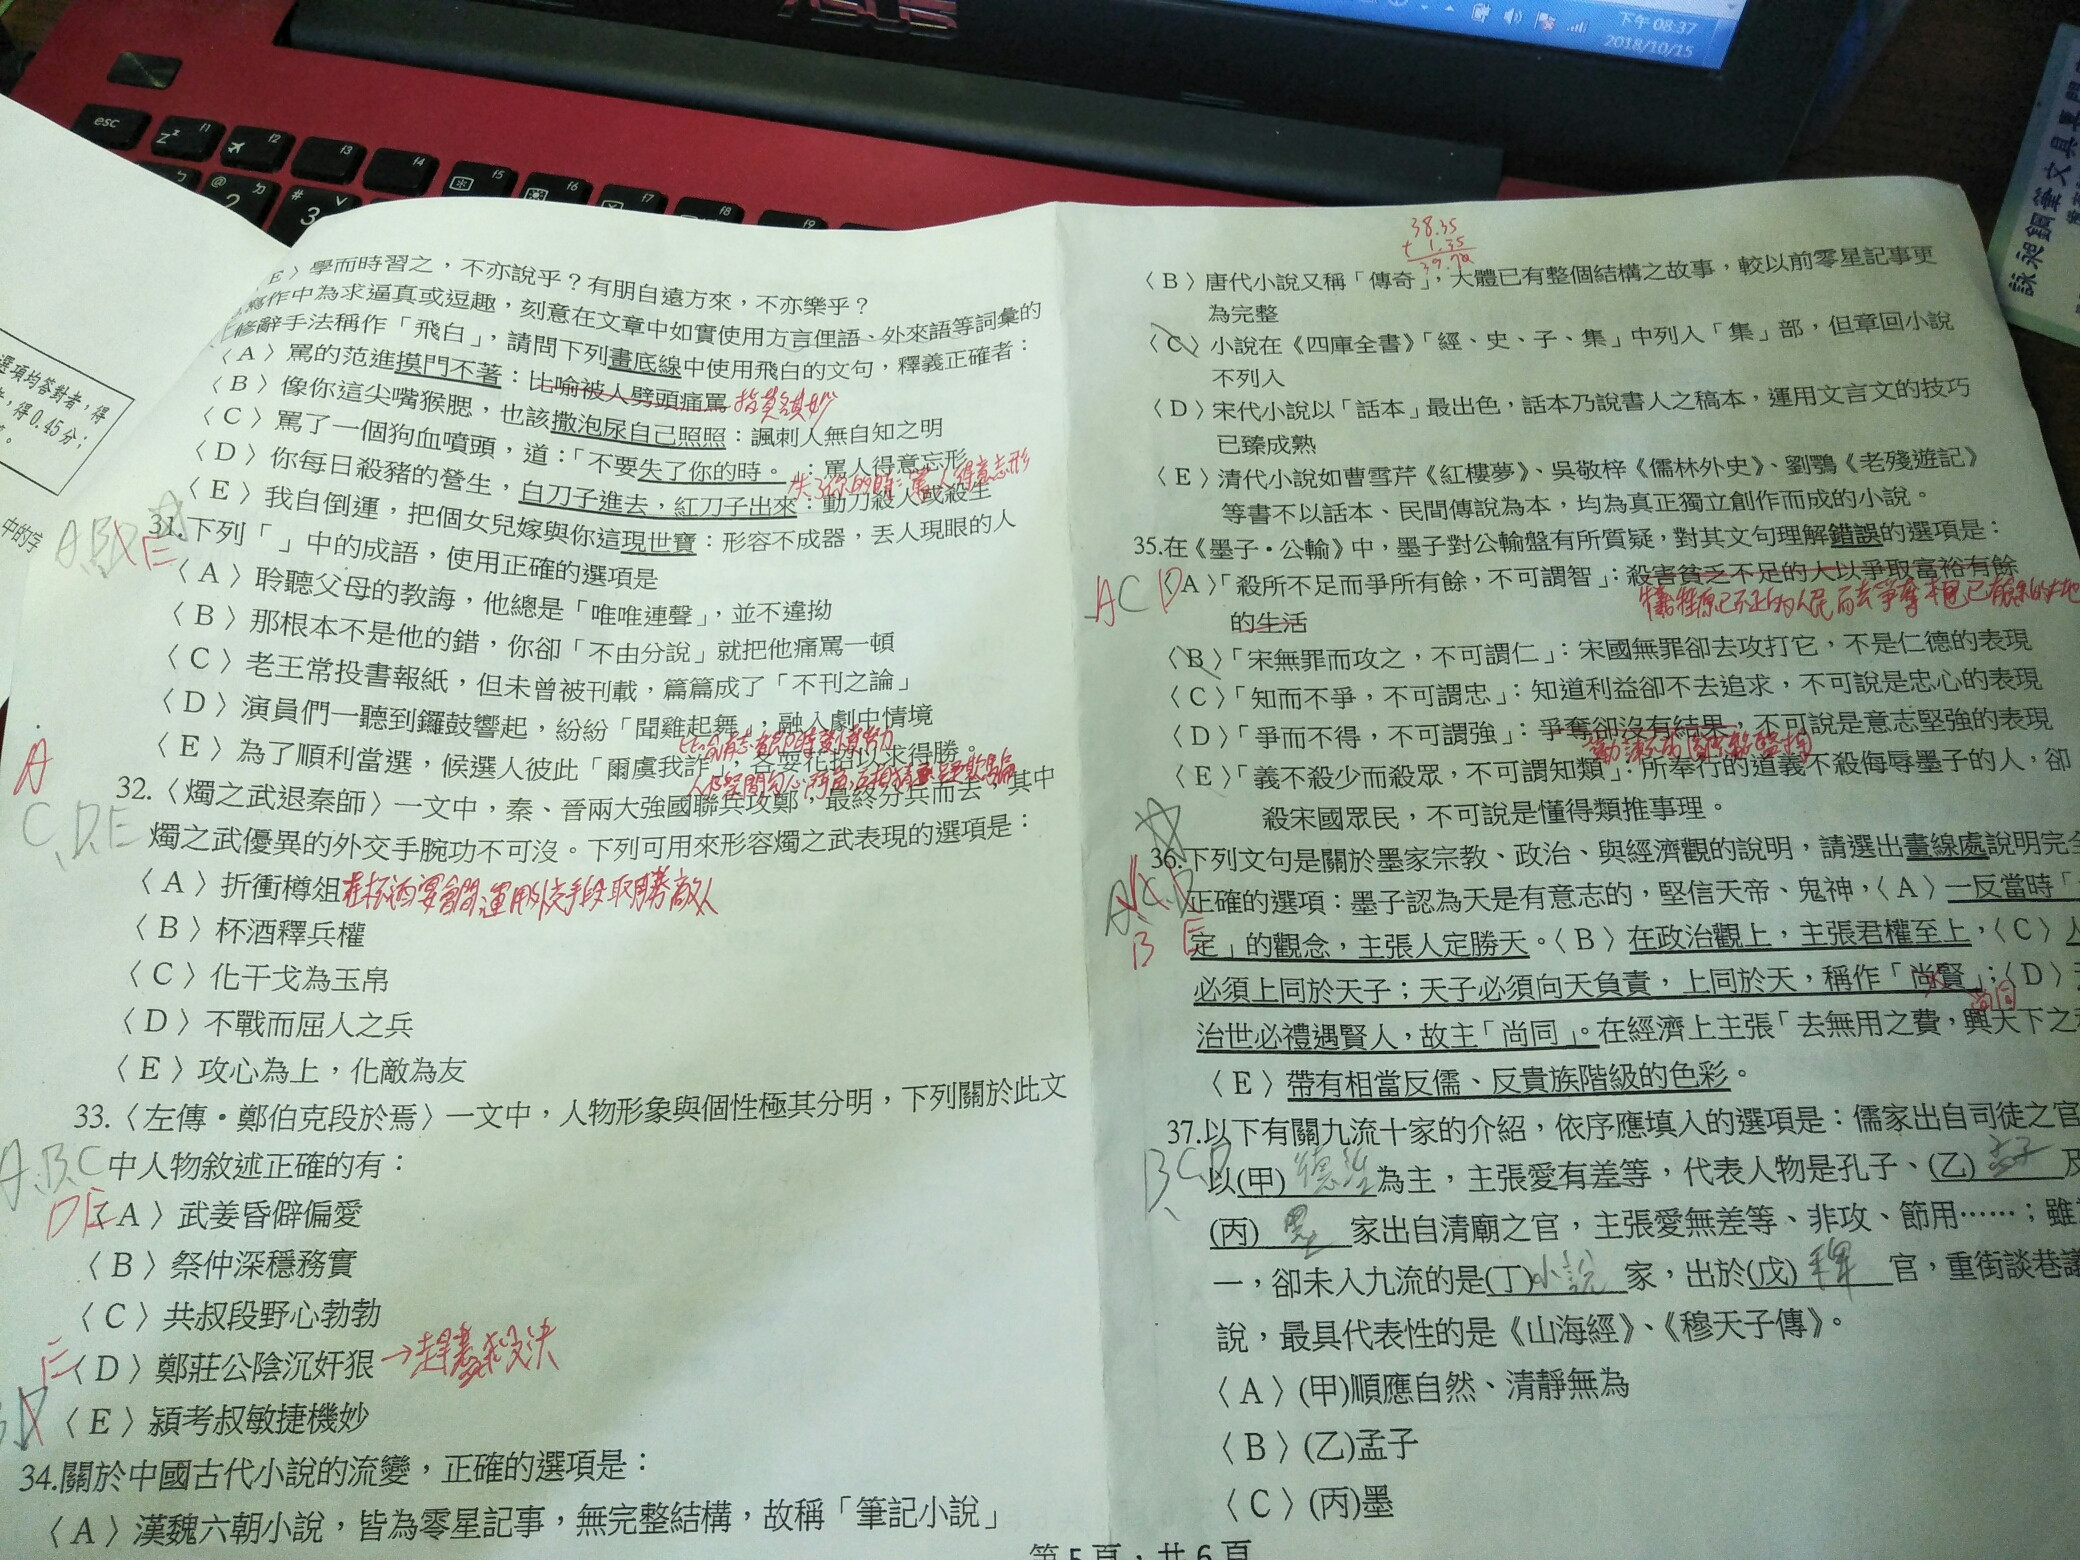 ASUS
下午 08:37
2018/10/15
esc
f1
f2
f3
f4
f5
f6
f7
f8
f9
詠昶鋼筆文具專
選項均答對者，得
，得0.45分；
中的字
E〉學而時習之，不亦說乎？有朋自遠方來，不亦樂乎？
寫作中為求逼真或逗趣，刻意在文章中如實使用方言俚語、外來語等詞彙的
修辭手法稱作「飛白」，請問下列畫底線中使用飛白的文句，釋義正確者：
〈A〉罵的范進摸門不著：比喻被人劈頭痛罵
〈B〉像你這尖嘴猴腮，也該撒泡尿自己照照：諷刺人無自知之明
〈C〉罵了一個狗血噴頭，道：「不要失了你的時。：罵人得意忘形
失了你的時：罵人得意忘形
〈D〉你每日殺豬的營生，白刀子進去，紅刀子出來：動刀殺人或殺生
〈E〉我自倒運，把個女兒嫁與你這現世寶：形容不成器，丟人現眼的人
31.下列「」中的成語，使用正確的選項是
〈A〉聆聽父母的教誨，他總是「唯唯連聲」，並不違拗
〈B〉那根本不是他的錯，你卻「不由分說」就把他痛罵一頓
〈C〉老王常投書報紙，但未曾被刊載，篇篇成了「不刊之論」
〈D〉演員們一聽到鑼鼓響起，紛紛「聞雞起舞」，融入劇中情境
〈E〉為了順利當選，候選人彼此「爾虞我詐」，各耍花招以求得勝。
A
C、D、E
32.〈燭之武退秦師〉一文中，秦、晉兩大強國聯兵攻鄭，最終分兵而去，其中
燭之武優異的外交手腕功不可沒。下列可用來形容燭之武表現的選項是：
〈A〉折衝樽俎在杯酒宴會間運用外交手段取勝敵人
〈B〉杯酒釋兵權
〈C〉化干戈為玉帛
〈D〉不戰而屈人之兵
〈E〉攻心為上，化敵為友
33.〈左傳・鄭伯克段於焉〉一文中，人物形象與個性極其分明，下列關於此文
A、B、C 中人物敘述正確的有：
DE
〈A〉武姜昏僻偏愛
〈B〉祭仲深穩務實
〈C〉共叔段野心勃勃
〈D〉鄭莊公陰沉奸狠
〈E〉潁考叔敏捷機妙
34.關於中國古代小說的流變，正確的選項是：
〈A〉漢魏六朝小說，皆為零星記事，無完整結構，故稱「筆記小說」
38.35
+ 1.35
39.70
〈B〉唐代小說又稱「傳奇」，大體已有整個結構之故事，較以前零星記事更
為完整
〈C〉小說在《四庫全書》「經、史、子、集」中列入「集」部，但章回小說
不列入
〈D〉宋代小說以「話本」最出色，話本乃說書人之稿本，運用文言文的技巧
已臻成熟
〈E〉清代小說如曹雪芹《紅樓夢》、吳敬梓《儒林外史》、劉鶚《老殘遊記》
等書不以話本、民間傳說為本，均為真正獨立創作而成的小說。
35.在《墨子・公輸》中，墨子對公輸盤有所質疑，對其文句理解錯誤的選項是：
ACD
〈A〉「殺所不足而爭所有餘，不可謂智」：殺害貧乏不足的人以爭取富裕有餘
的生活
〈B〉「宋無罪而攻之，不可謂仁」：宋國無罪卻去攻打它，不是仁德的表現
〈C〉「知而不爭，不可謂忠」：知道利益卻不去追求，不可說是忠心的表現
〈D〉「爭而不得，不可謂強」：爭奪卻沒有結果，不可說是意志堅強的表現
〈E〉「義不殺少而殺眾，不可謂知類」：所奉行的道義不殺侮辱墨子的人，卻
殺宋國眾民，不可說是懂得類推事理。
36.下列文句是關於墨家宗教、政治、與經濟觀的說明，請選出畫線處說明完全
正確的選項：墨子認為天是有意志的，堅信天帝、鬼神，〈A〉一反當時「
定」的觀念，主張人定勝天。〈B〉在政治觀上，主張君權至上，〈C〉
必須上同於天子；天子必須向天負責，上同於天，稱作「尚賢」；〈D〉
尚同
治世必禮遇賢人，故主「尚同」。在經濟上主張「去無用之費，興天下之
〈E〉帶有相當反儒、反貴族階級的色彩。
B E
37.以下有關九流十家的介紹，依序應填入的選項是：儒家出自司徒之官
B、C、D
以(甲) 為主，主張愛有差等，代表人物是孔子、(乙) 孟子 及
(丙) 墨 家出自清廟之官，主張愛無差等、非攻、節用……；雖
一，卻未入九流的是(丁)小說 家，出於(戊) 稗 官，重街談巷議
說，最具代表性的是《山海經》、《穆天子傳》。
〈A〉(甲)順應自然、清靜無為
〈B〉(乙)孟子
〈C〉(丙)墨
第 5 頁，共 6 頁